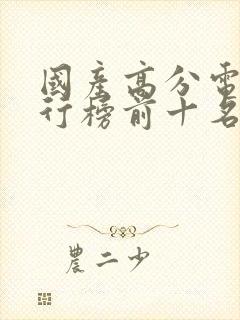 國產高分電
行榜前十名
農二少